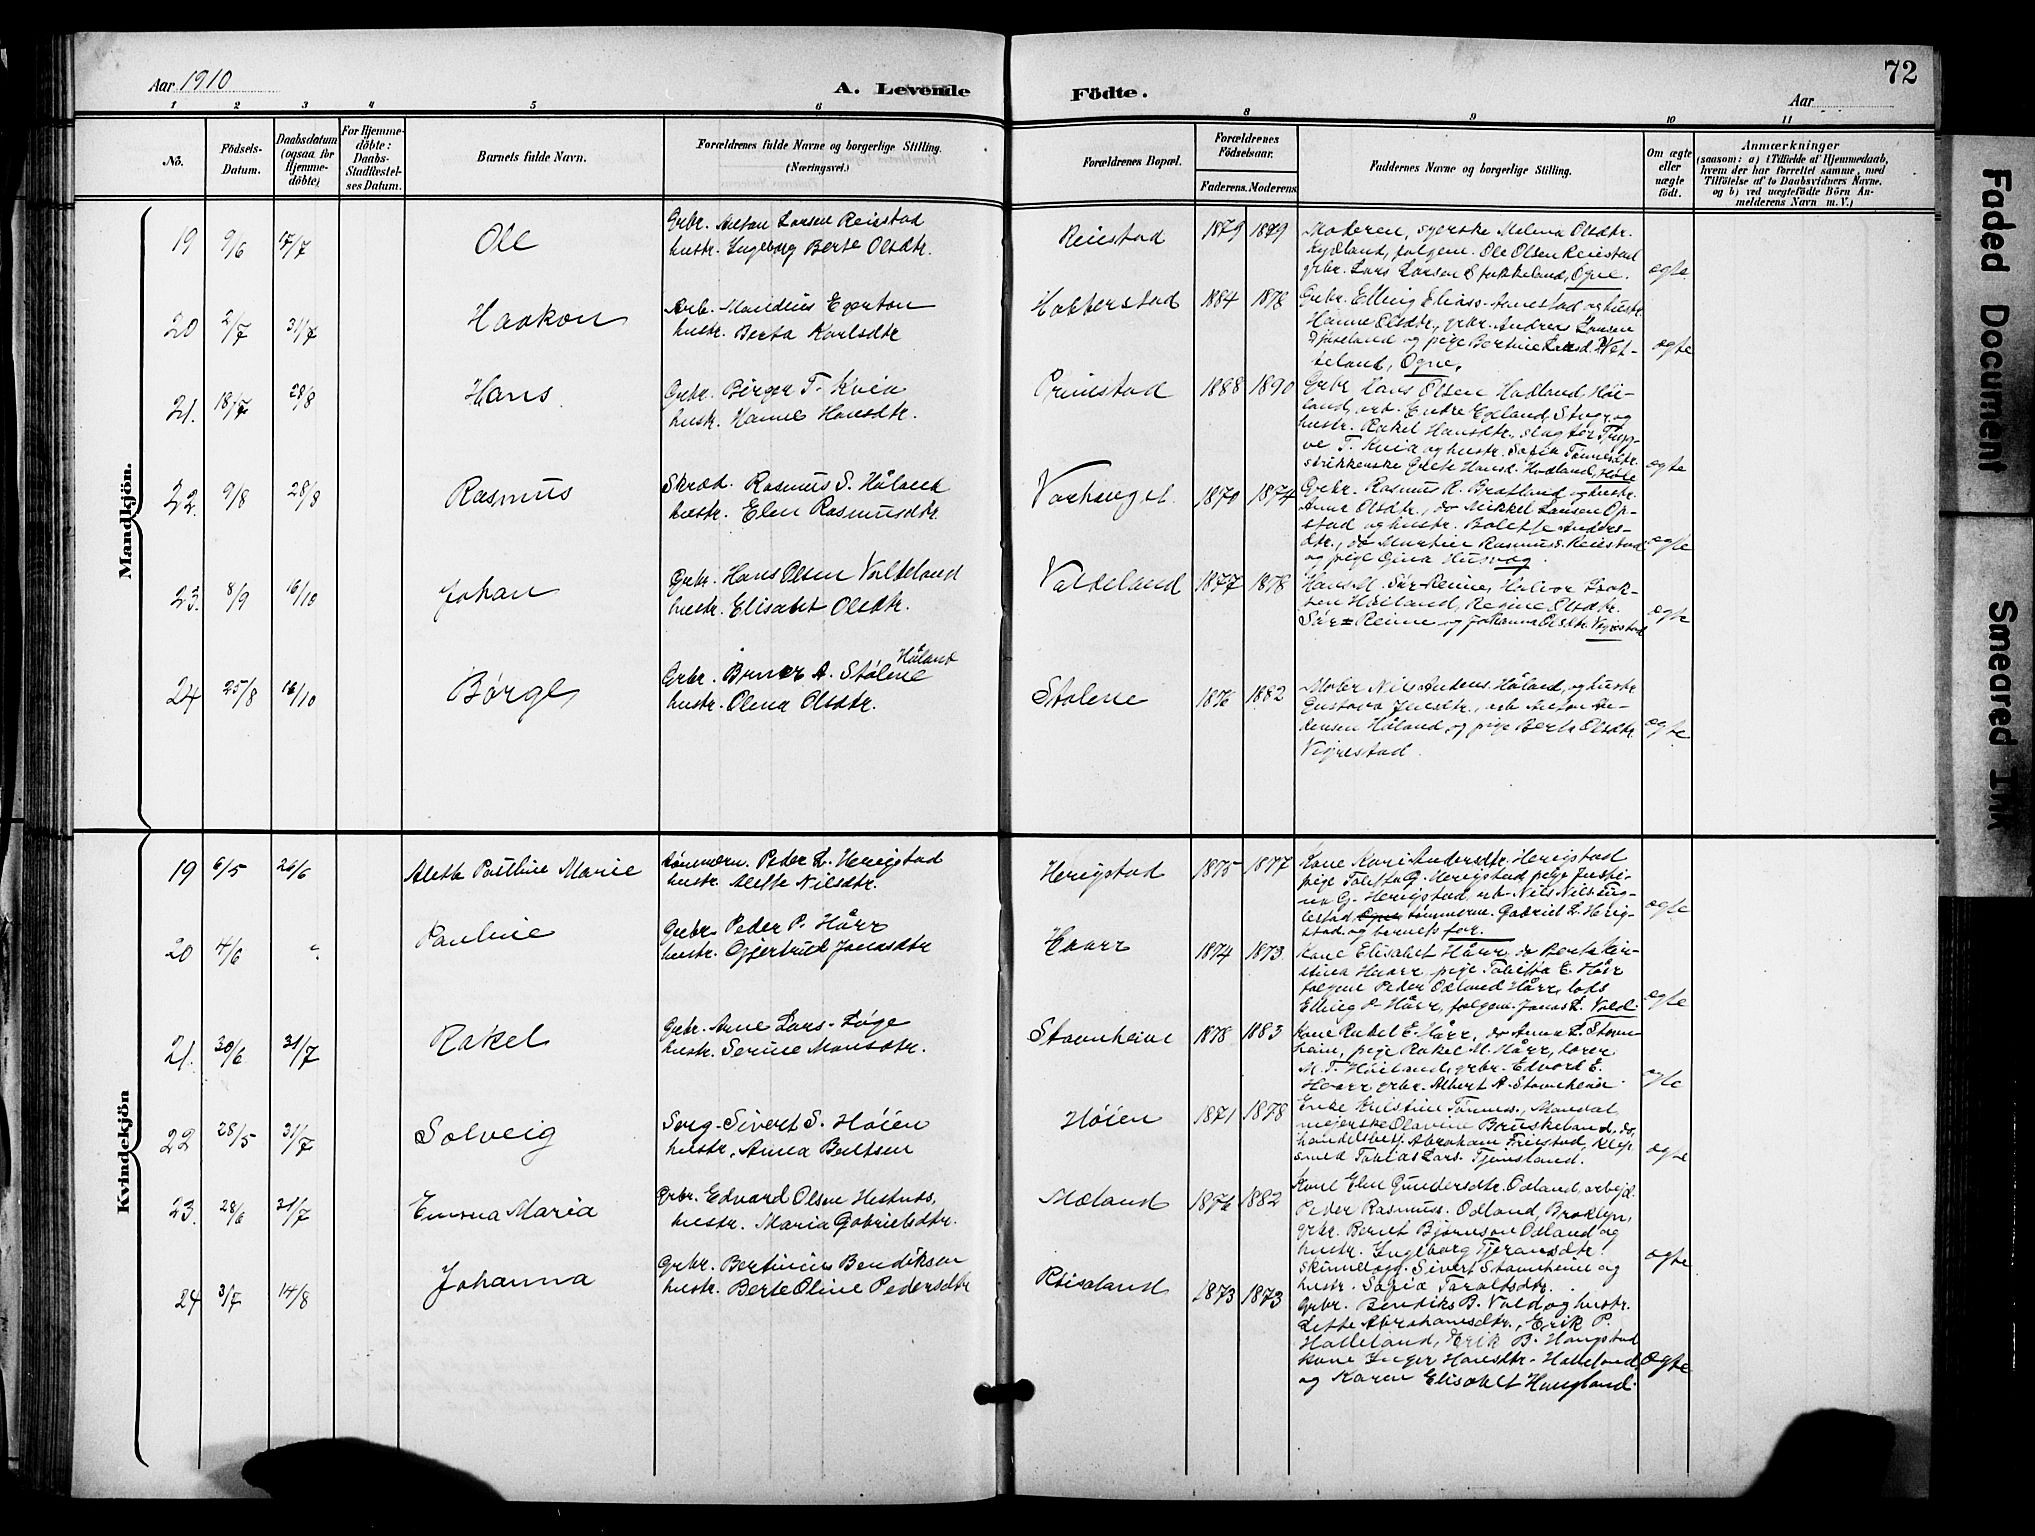 Aar 1910
A. Levende Födte.
Aar
72
1 2 3 4 5 6 8 9 10 11
No.
Födsels-Datum.
Daabsdatum (ogsaa for Hjemme-döbte)
For Hjemme-döbte: Daabs-Stadfæstel-ses Datum.
Barnets fulde Navn.
Forældrenes fulde Navne og borgerlige Stilling. (Næringsvei.)
Forældrenes Bopæl.
Forældrenes Födselsaar.
Faderens. Moderens
Faddernes Navne og borgerlige Stilling.
Om ægte eller uægte födt.
Anmærkninger
(saasom: a) i Tilfælde af Hjemmedaab,
hvem der har forrettet samme, med
Tilföielse af to Daabsvidners Navne.
og b) ved uægtefödte Börn An-
melderens Navn m. V.)
Mandkjön.
19 9/6 17/7 Ole
Grbr. Anton Larsen Reiestad
hustr. Ingeborg Berte Olsdtr.
Reiestad 1879 1879
Moderen, syerske Melina Olsdtr.
Kydland, folgem. Ole Olsen Reiestad
grbr. Lars Larsen Stokkeland, Ogne.
ægte
20 2/7 31/7 Haakon
Arb. Mandius Egertan
hustr. Berta Karlsdtr
Hobberstad 1884 1878
Grbr. Elling Eliass. Aanestad og hustr.
Hanne Olsdtr., grbr. Andreas Larsen
og pige Bertine
land, Ogne.
ægte
21. 18/7 28/8 Hans
Grbr. Birger T. Kvia
hustr. Hanne Hansdtr.
Primstad 1888 1890
Grbr Hans Olsen Hodland Høi-
land, arb. Endre Egeland, og
hustr. Rakel Hansdtr., slagter Tryg-
ve T. Kvia og hustr. Sofie Tønnesdtr.
strikkerske Grete Hansd. Hodland, Høle
ægte
22. 9/8 28/8 Rasmus
Skræd. Rasmus S. Håland
hustr. Elen Rasmusdtr.
Varhauget 1870 1874
Grbr. Rasmus R. Bratland og hustr.
Anne Olsdtr., do Mikkel Larsen Op-
stad og hustr. Bolette Anders-
dtr., do Martin Rasmuss. Reiestad
og pige Gina Husvåg.
ægte
23. 8/9 16/10 Johan
Grbr. Hans Olsen Valdeland
hustr. Elisabet Olsdtr.
Valdeland 1877 1878
Hans M. Sør-Reime, Halvor Isak-
sen Høiland, Regine Olsdtr.
Sør-Reime og Johanna Olsdtr. Vigrestad
ægte
24 25/8 16/10 Børge
Håland
Grbr. Berner A. Stølene
hustr. Olena Olsdtr.
Stølene 1876 1882
Maler Nils Anders. Håland, og hustr.
Gustava Jensdtr., arb Anton An-
dersen Håland, og pige Berta Olsdtr.
Vigrestad.
ægte
Kvindekjön
19 6/5 26/6 Alette Pauline Marie
tømmerm. Peder L. Herigstad
hustr. Alette Nilsdtr.
Herigstad 1875 1877
Kone Kari Andersdtr. Herigstad
pige Tolette G. Herigstad pige
G. Herigstad, arb. Nils Nils.
lestad, tømmerm. Gabriel L. Herig-
stad og barnets far.
ægte
20 4/6 " Pauline
Grbr. Peder P. Hårr
hustr. Gjertrud Jonasdtr
Haarr 1874 1873
Kone Elisabet Hårr, do Berta Kir-
stina Haarr, pige Tabitta E. Hårr
folgem Peder Odland Hårr, lods
Elling P. Hårr, folgem. Jonas L. Vold.
ægte
21. 30/6 31/7 Rakel
Grbr. Arne Lars. Løge
hustr. Serine Monsdtr.
Stavnheim 1878 1883
Kone Rakel E. Hårr, do Anna L. Stavn-
heim, pige Rakel M. Hårr, lærer
M. T. Høiland, grbr. Edvard E.
Haarr, grbr. Albert A. Stavnheim.
ægte
22 28/5 31/7 Solveig
Sorg. Sivert S. Høien
hustr. Anna Bentsen
Høien 1871 1878
Enke Kristine Tønness., Mandal
meierske Olavine Bruskeland, do,
handelsbest. Abraham Friestad, Klep
smed Tobias Lars. Tjensland.
ægte
23. 28/6 31/7 Emma Maria
Grbr. Edvard Olsen Hestnes,
hustr. Maria Gabrielsdtr.
Mæland 1876 1882
Kone Elen Gundersdtr. Odland, arbejd.
Peder Rasmuss. Odland, Broklyn,
grbr. Bernt Bjørnson Odland og
hustr. Ingeborg Tjeransdtr.
Sivert Stavnheim og
hustr. Sofia Taraldsdtr.
ægte
24 3/7 14/8 Johanna
Grbr. Bertinius Bendiksen
hustr. Berte Oline Pedersdtr
Risaland 1873 1873
Grbr. Bendiks B. Vold og hustr.
Lette Abrahamsdtr., Erik P.
Halleland, Erik B. Hangstad
kone Inger Hansdtr. Halleland,
og Karen Elisabet Haugland.
ægte
Faded Document
Smeared Ink